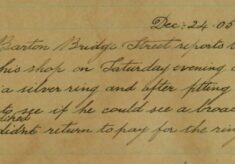 Dec: 24 05
Barton Bridge Street reports t
his shop on Saturday evening
a silver ring and after fitting
to see if he could see a broa
didnt return to pay for the rin